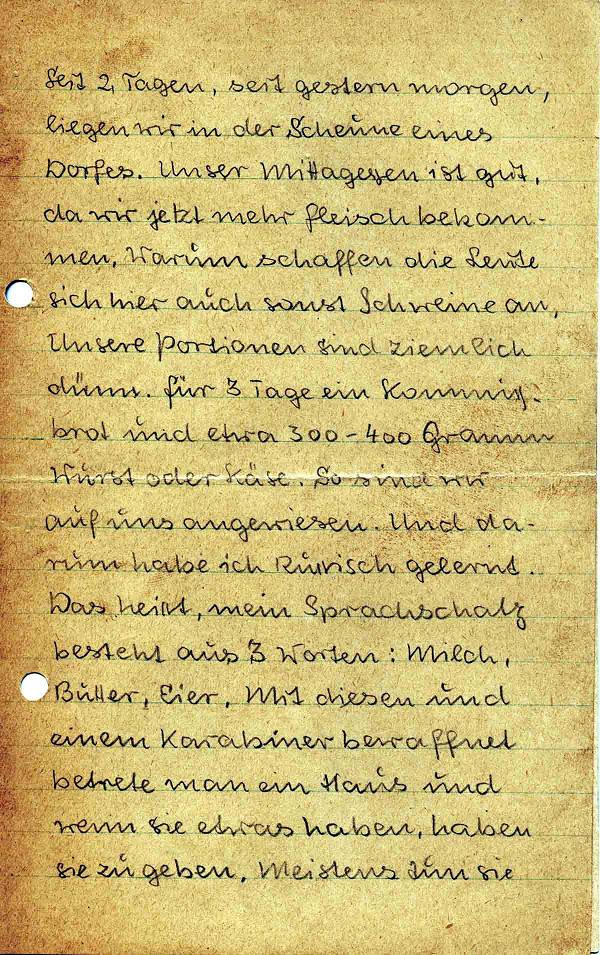 Seit 2 Tagen, seit gestern morgen,
liegen wir in der Scheune eines
Dorfes. Unser Mittagessen ist gut,
da wir jetzt mehr Fleisch bekom-
men. Warum schaffen die Leute
sich hier auch sonst Schweine an.
Unsere Portionen sind ziemlich
dünn. Für 3 Tage ein Kommiß-
brot und etwa 300-400 Gramm
Wurst oder Käse. So sind wir
auf uns angewiesen. Und da-
rum habe ich Russisch gelernt.
Das heißt, mein Sprachschatz
besteht aus 3 Worten: Milch,
Butter, Eier. Mit diesen und
einem Karabiner bewaffnet
betrete man ein Haus und
wenn sie etwas haben, haben
sie zu geben. Meistens tun sie